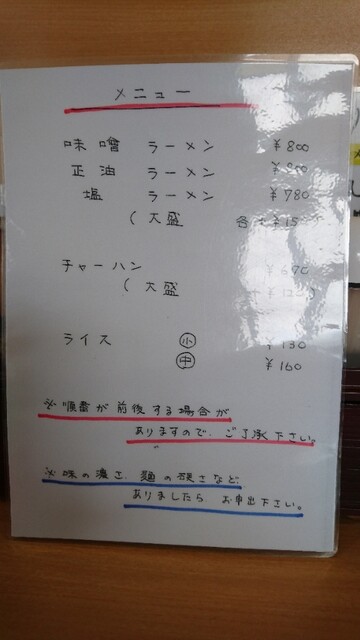 メニュー
味噌 ラーメン ¥800
正油 ラーメン
塩 ラーメン ¥780
(大盛
チャーハン
(大盛
ライス 小 ¥130
中 ¥160
※順番が前後する場合が
ありますので、ご了承下さい。
※味の濃さ、麺の硬さなど
ありましたら お申出下さい。